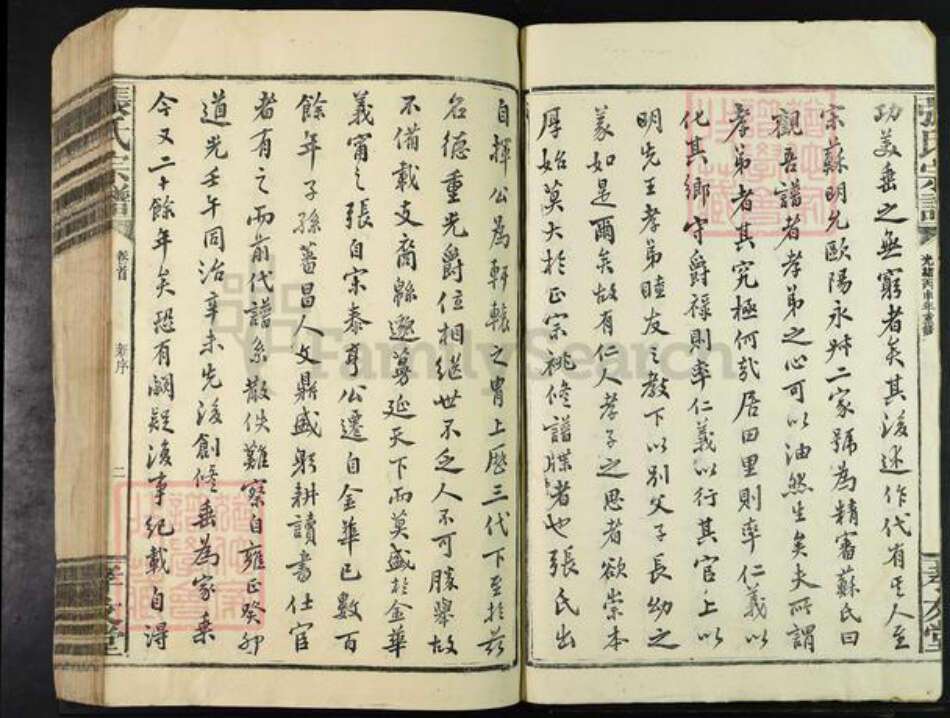 功美垂之無窮者矣其後述作代有其人至
宋蘇明允歐陽永叔二家號為精審蘇氏曰
觀吾譜者孝弟之心可以油然生矣夫所謂
孝弟者其究極何哉居田里則率仁義以
化其鄉守爵祿則率仁義以行其官上以
明先王孝弟睦友之教下以別父子長幼之
義如是爾矣故有仁人孝子之思者欲崇本
厚始莫大於正宗祧修譜牒者也張氏出
自揮公為軒轅之胄上歷三代下至於茲
名德重光爵位相繼世不乏人不可勝舉故
不備載支裔緜邈蔓延天下而莫盛於金華
義甯之張自宋泰亨公遷自金華已數百
餘年子孫蕃昌人文鼎盛躬耕讀書仕宦
者有之而前代譜系散佚難察自雍正癸卯
道光壬午同治辛未先後創修垂為家乘
今又二十餘年矣恐有闕疑後事紀載自得
張氏宗譜
卷首
新序
二
孝友堂
張氏宗譜
光緒丙申年重修
孝友堂
FamilySearch